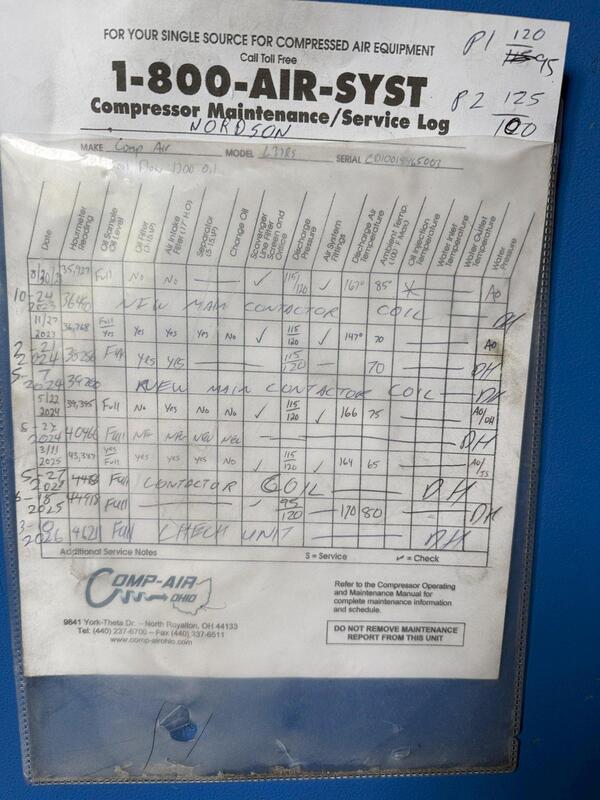 FOR YOUR SINGLE SOURCE FOR COMPRESSED AIR EQUIPMENT
Call Toll Free
1-800-AIR-SYST
Compressor Maintenance/Service Log
P1 120
95
P2 125
100
NORDSON
MAKE Comp Air MODEL L77RS SERIAL
Flow 1200 Oil
Date Hourmeter Reading Oil Sample Oil Level Oil Filter Air Intake Filter Separator Change Oil Scavenger Line Filter Screen and Orifice Discharge Pressure Air System Fittings Discharge Air Temperature Ambient Temp. (100° F Max) Oil Injection Temperature Water Inlet Temperature Water Outlet Temperature Water Pressure
35,727 Full No No — ✓ 115/120 ✓ 167° 85° AO
10-24 2023 NEW MAIN CONTACTOR COIL DH
11/27 2023 36,768 Full/Yes Yes Yes Yes No ✓ 115/120 ✓ 147° 70 AO
2-21 2024 Full YRS YRS 115/120 70 DH
5-7 2024 39200 NEW MAIN CONTACTOR COIL DH
5/22 2024 39,395 Full No Yes No No ✓ 115/120 ✓ 166 75 AO/DH
8-27 2024 40466 Full NEW NEW DH
3/11 2025 43,387 Yes Full Yes Yes Yes No ✓ 115/120 ✓ 164 65
5-27 2025 Full CONTACTOR COIL DH
2025 44918 Full 95/120 170 80 DH
2026 Full CHECK UNIT DH
Additional Service Notes S = Service ✓ = Check
COMP-AIR
OHIO
9841 York-Theta Dr. – North Royalton, OH 44133
Tel: (440) 237-6700 – Fax (440) 337-6511
www.comp-airohio.com
Refer to the Compressor Operating
and Maintenance Manual for
complete maintenance information
and schedule.
DO NOT REMOVE MAINTENANCE
REPORT FROM THIS UNIT